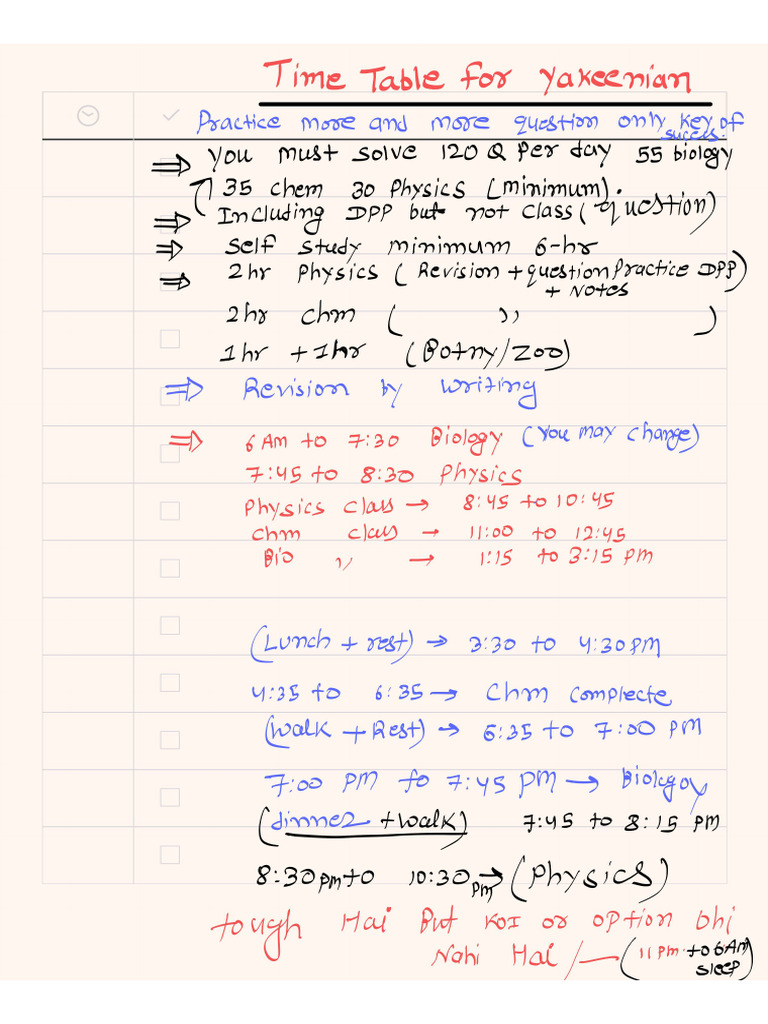 Time Table for Yakeenian
Practice more and more question only key of
success.
⇒ You must solve 120 Q per day 55 biology
35 chem 30 Physics (minimum).
⇒ Including DPP but not class (question)
⇒ self study minimum 6-hr
⇒ 2hr Physics (Revision + question Practice DPP)
+ Notes
2hr chm ( ,, )
1hr + 1hr (Botny/Zoo)
⇒ Revision by writing
⇒ 6 Am to 7:30 Biology (you may change)
7:45 to 8:30 Physics
Physics class → 8:45 to 10:45
Chm class → 11:00 to 12:45
Bio ,, → 1:15 to 3:15 pm
(Lunch + rest) → 3:30 to 4:30 PM
4:35 to 6:35 → Chm complecte
(Walk + Rest) → 6:35 to 7:00 PM
7:00 PM to 7:45 PM → Biologoy
(dinner + walk) 7:45 to 8:15 PM
8:30 pm to 10:30 pm → (Physics)
tough Hai But KOI or option bhi
Nahi Hai / — (11 pm to 6 Am
sleep)